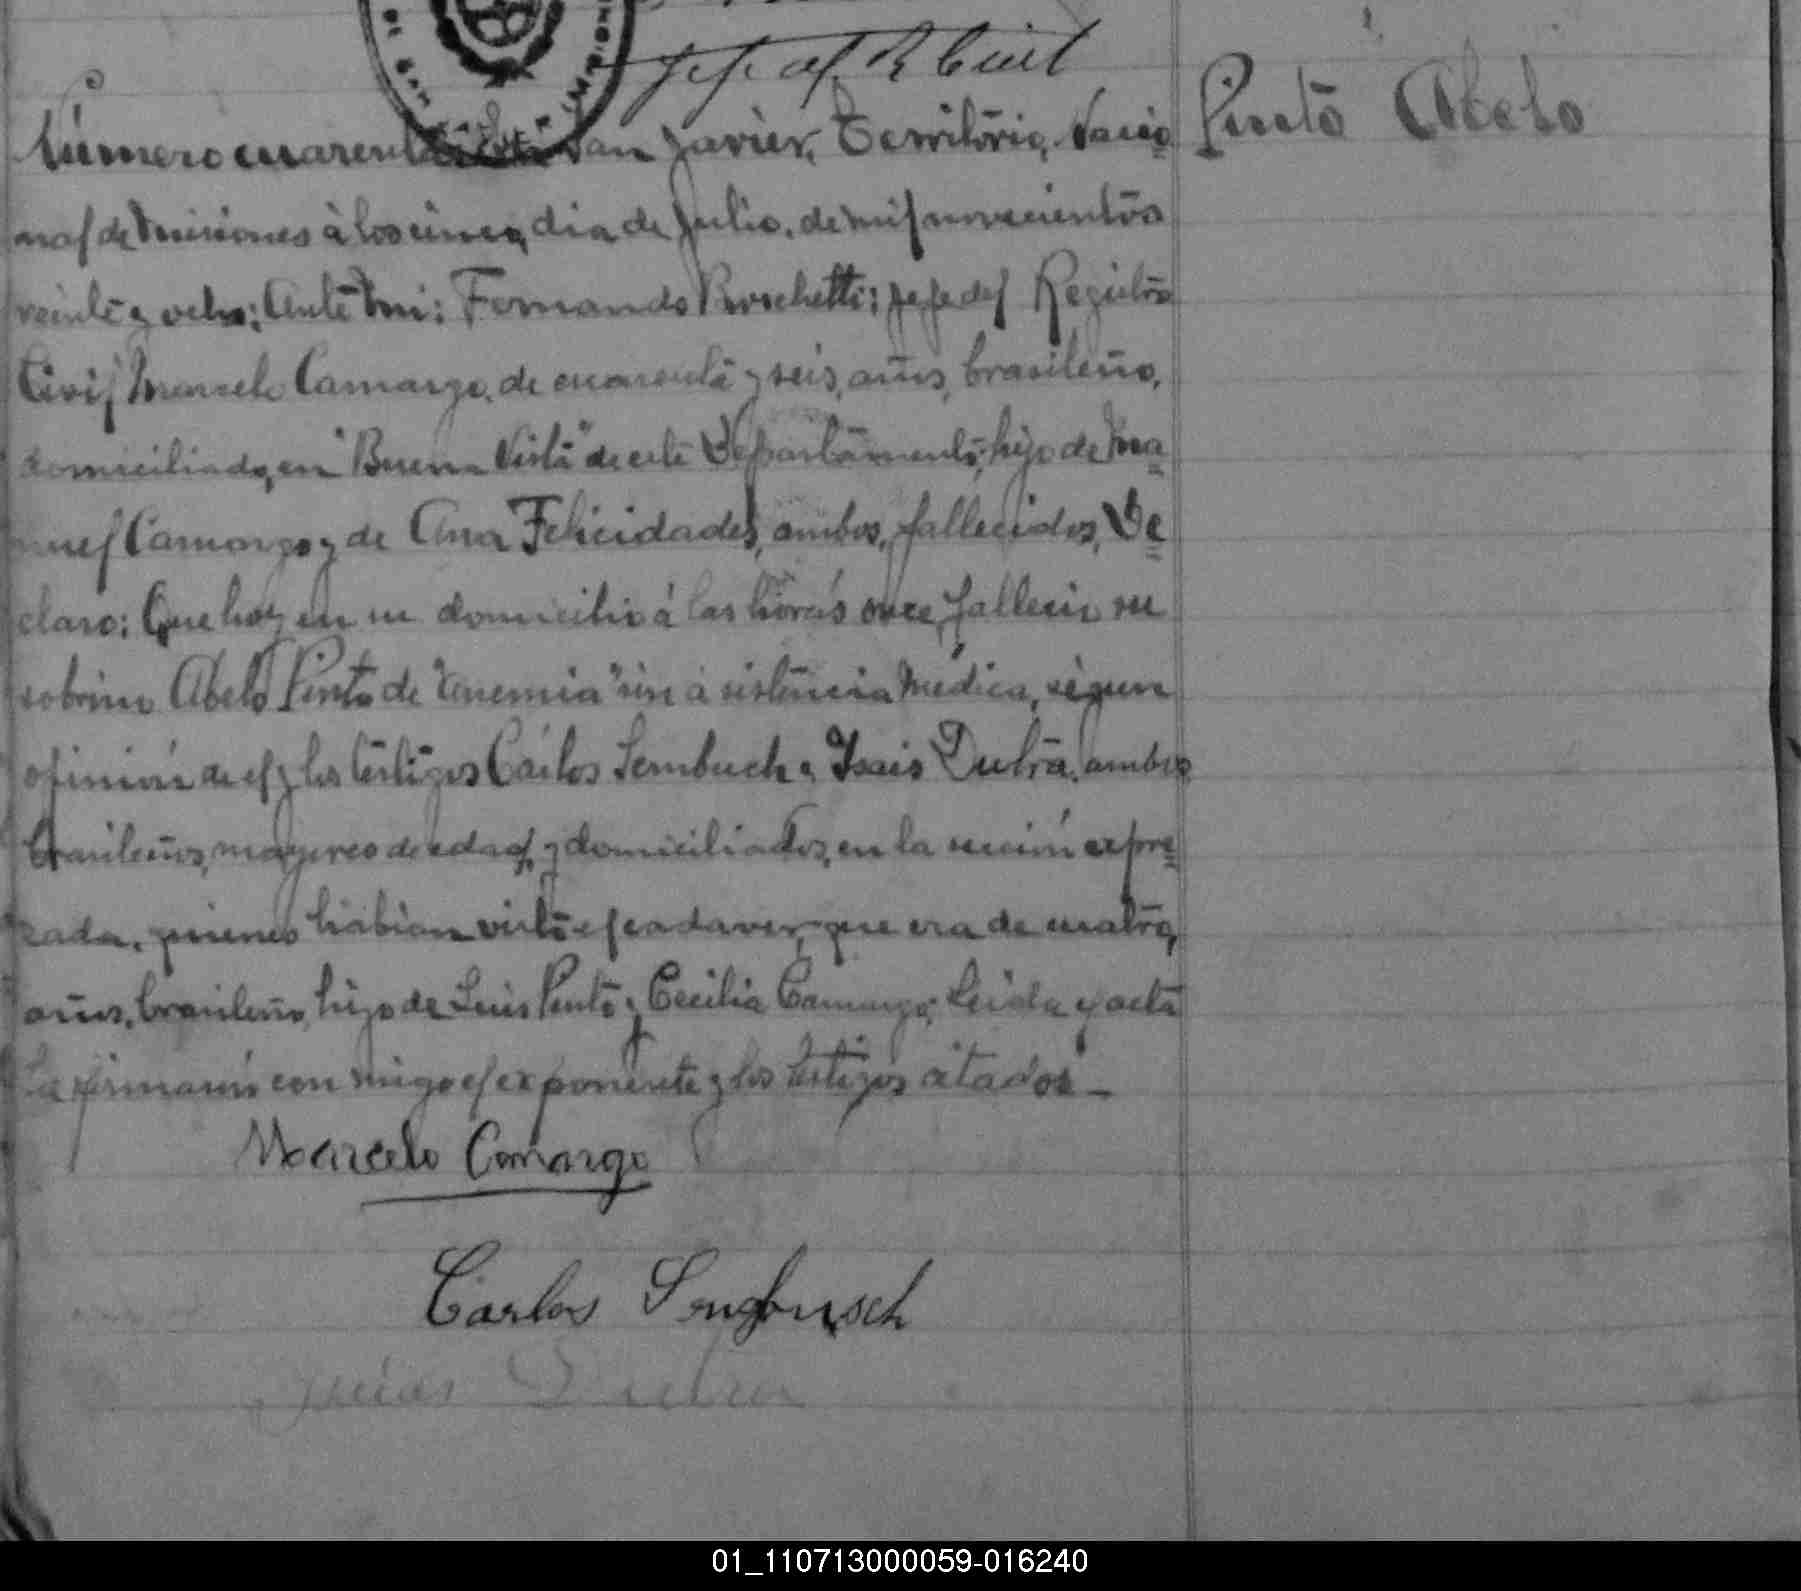 Jefe del R Civil
Pinto Abelo
Número cuarenta San Javier, Territorio, Nacio
nal de Misiones á los cinco, dia de Julio, de mil novecientos
veinte y ocho; Ante mi: Fernando Boschetti; Jefe del Registro
Civil Marcelo Camargo, de cuarenta y seis, años, brasileño,
domiciliado, en "Buena Vista" de este Departamento, hijo de Ma=
nuel Camargo y de Ana Felicidades, ambos, fallecidos, De=
claro: Que hoy en su domicilio á las horas once, fallecio su
sobrino Abelo Pinto de "Anemia" sin asistencia Médica, ségun
opinión de el y los testigos Cárlos Sembuch y Isais Dutra, ambos
brasileños, mayores de edad, y domiciliados, en la sección expre=
zada, quienes habian visto el cadaver, que era de cuatro,
años, brasileño, hijo de Luis Pinto y Cecilia Camargo; Leida el acta
la firmarón con migo el exponente y los testigos citados —
Marcelo Camargo
Carlos Sengbusch
Isaias Dutra
01_110713000059-016240